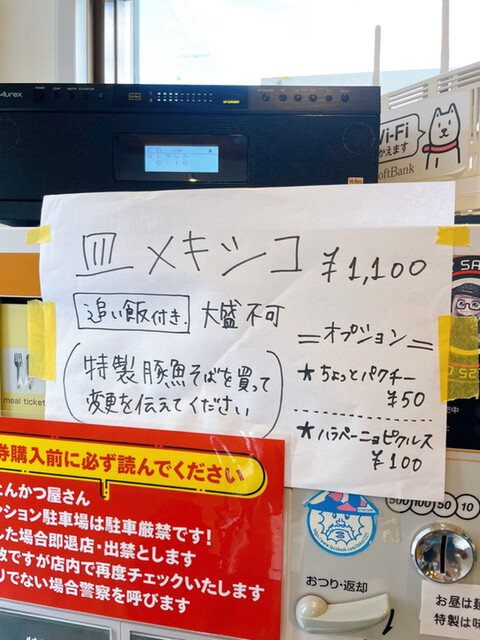 Aurex
Wi-Fi
かえます
SoftBank
皿 メキシコ ¥1,100
追い飯付き. 大盛不可
(特製豚魚そばを買って
変更を伝えてください)
=オプション=
★ちょっとパクチー
¥50
★ハラペーニョピクルス
¥100
meal ticket
券購入前に必ず読んでください
とんかつ屋さん
ション駐車場は駐車厳禁です!
した場合即退店・出禁とします
数ですが店内で再度チェックいたします
りでない場合警察を呼びます
500 100 50 10
おつり・返却
お昼は
特製は